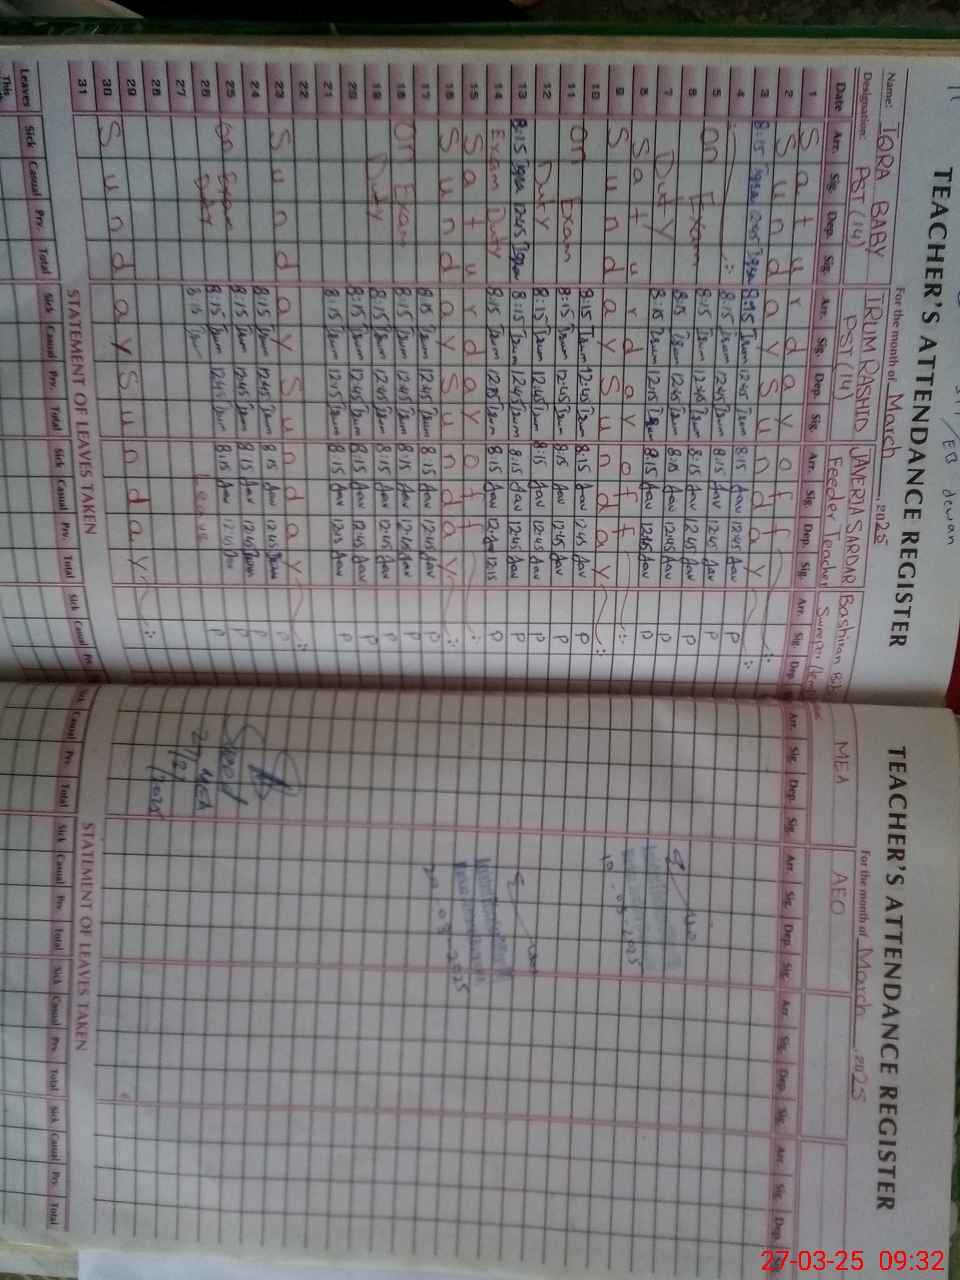 TEACHER'S ATTENDANCE REGISTER
For the month of March, 2025
Name: IQRA BABY IRUM RASHID JAVERIA SARDAR Bashiran Bibi
Designation: PST (14) PST (14) Feeder Teacher Sweeper
Date Arr. Sig. Dep. Sig. Arr. Sig. Dep. Sig. Arr. Sig. Dep. Sig. Arr. Sig. Dep.
1 Saturday off
2 Sunday Sunday
3 8:15 Iqra Iqra 8:15 Irum 12:45 Irum 8:15 Jav 12:45 Jav P
4 8:15 Irum 12:45 Irum 8:15 Jav 12:45 Jav P
5 On Exam 8:15 Irum 12:45 Irum 8:15 Jav 12:45 Jav P
6 8:15 Irum 12:45 Irum 8:15 Jav 12:45 Jav P
7 Duty 8:15 Irum 12:45 Irum 8:15 Jav 12:45 Jav P
8 Saturday off
9 Sunday Sunday
10 8:15 Irum 12:45 Irum 8:15 Jav 12:45 Jav P
11 On Exam 8:15 Irum 12:45 Irum 8:15 Jav 12:45 Jav P
12 Duty 8:15 Irum 12:45 Irum 8:15 Jav 12:45 Jav P
13 8:15 Iqra 12:45 Iqra 8:15 Irum 12:45 Irum 8:15 Jav 12:45 Jav P
14 Exam Duty 8:15 Irum Irum 8:15 Jav P
15 Saturday off
16 Sunday Sunday
17 8:15 Irum 12:45 Irum 8:15 Jav 12:45 Jav P
18 On Exam 8:15 Irum 12:45 Irum 8:15 Jav 12:45 Jav P
19 Duty 8:15 Irum 12:45 Irum 8:15 Jav 12:45 Jav P
20 8:15 Irum 12:45 Irum 8:15 Jav 12:45 Jav P
21 8:15 Irum Irum 8:15 Jav Jav P
22
23 Sunday Sunday
24 8:15 Irum 12:45 Irum 8:15 Jav 12:45 P
25 On Exam 8:15 Irum 12:45 Irum 8:15 Jav 12:45 P
26 Duty 8:15 Irum 12:45 Irum 8:15 Jav 12:45 Jav P
27 8:15 Irum Leave
28
29
30 Sunday Sunday
31
STATEMENT OF LEAVES TAKEN
Leaves Sick Casual Prv. Total Sick Casual Prv. Total Sick Casual Prv. Total Sick Casual Prv.
This
TEACHER'S ATTENDANCE REGISTER
For the month of March, 2025
MEA AEO
Arr. Sig. Dep. Sig. Arr. Sig. Dep. Sig. Arr. Sig. Dep. Sig. Arr. Sig. Dep.
10.03.2025
20.03.2025
MEA
STATEMENT OF LEAVES TAKEN
Sick Casual Prv. Total Sick Casual Prv. Total Sick Casual Prv. Total Sick Casual Prv. Total
27-03-25 09:32